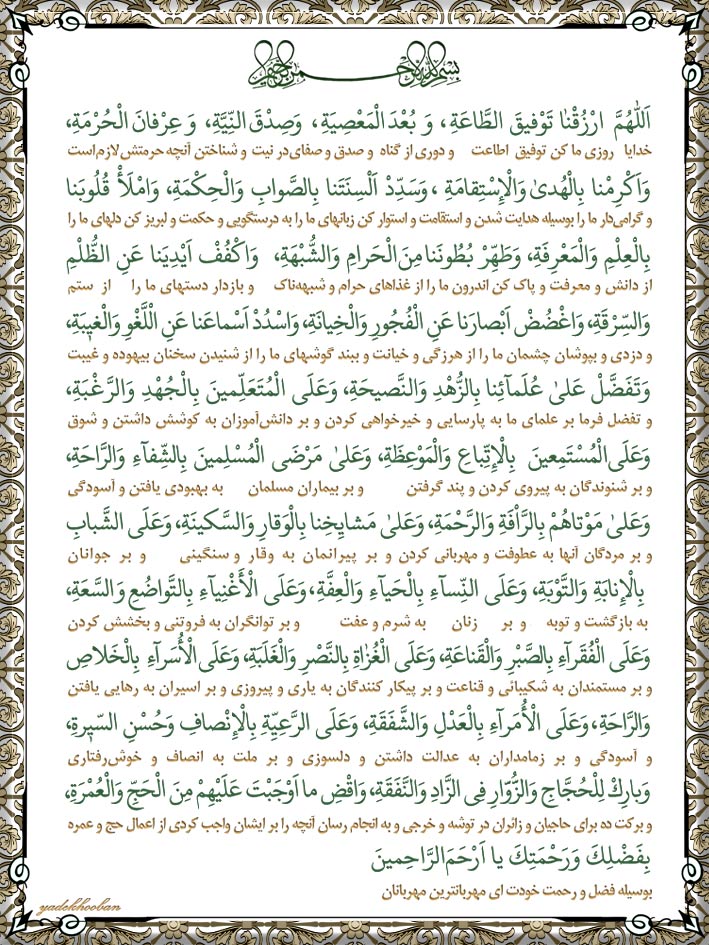 بسم الله الرحمن الرحیم
اَللّٰهُمَّ ارْزُقْنٰا تَوْفیقَ الطَّاعَةِ، وَ بُعْدَ الْمَعْصِیَةِ، وَصِدْقَ النِّیَّةِ، وَ عِرْفانَ الْحُرْمَةِ،
خدایا روزی ما کن توفیق اطاعت و دوری از گناه و صدق و صفای در نیت و شناختن آنچه حرمتش لازم است
وَاَکْرِمْنا بِالْهُدیٰ وَالْإِسْتِقامَةِ ، وَسَدِّدْ اَلْسِنَتَنا بِالصَّوابِ وَالْحِکْمَةِ، وَامْلَأْ قُلُوبَنا
و گرامی‌دار ما را بوسیله هدایت شدن و استقامت و استوار کن زبانهای ما را به درستگویی و حکمت و لبریز کن دلهای ما را
بِالْعِلْمِ وَالْمَعْرِفَةِ، وَطَهِّرْ بُطُونَنا مِنَ الْحَرامِ وَالشُّبْهَةِ، وَاکْفُفْ اَیْدِیَنا عَنِ الظُّلْمِ
از دانش و معرفت و پاک کن اندرون ما را از غذاهای حرام و شبهه‌ناک و بازدار دستهای ما را از ستم
وَالسِّرْقَةِ، وَاغْضُضْ اَبْصارَنا عَنِ الْفُجُورِ وَالْخِیانَةِ، وَاسْدُدْ اَسْماعَنا عَنِ اللَّغْوِ وَالْغیبَةِ،
و دزدی و بپوشان چشمان ما را از هرزگی و خیانت و ببند گوشهای ما را از شنیدن سخنان بیهوده و غیبت
وَتَفَضَّلْ عَلیٰ عُلَمآئِنا بِالزُّهْدِ وَالنَّصیحَةِ، وَعَلَی الْمُتَعَلِّمینَ بِالْجُهْدِ وَالرَّغْبَةِ،
و تفضل فرما بر علمای ما به پارسایی و خیرخواهی کردن و بر دانش‌آموزان به کوشش داشتن و شوق
وَعَلَی الْمُسْتَمِعینَ بِالْإِتِّباعِ وَالْمَوْعِظَةِ، وَعَلیٰ مَرْضَی الْمُسْلِمینَ بِالشِّفآءِ وَالرَّاحَةِ،
و بر شنوندگان به پیروی کردن و پند گرفتن و بر بیماران مسلمان به بهبودی یافتن و آسودگی
وَعَلیٰ مَوْتاهُمْ بِالرَّأْفَةِ وَالرَّحْمَةِ، وَعَلیٰ مَشایِخِنا بِالْوَقارِ وَالسَّکینَةِ، وَعَلَی الشَّبابِ
و بر مردگان آنها به عطوفت و مهربانی کردن و بر پیرانمان به وقار و سنگینی و بر جوانان
بِالْإِنابَةِ وَالتَّوْبَةِ، وَعَلَی النِّسآءِ بِالْحَیآءِ وَالْعِفَّةِ، وَعَلَی الْأَغْنِیآءِ بِالتَّواضُعِ وَالسَّعَةِ،
به بازگشت و توبه و بر زنان به شرم و عفت و بر توانگران به فروتنی و بخشش کردن
وَعَلَی الْفُقَرآءِ بِالصَّبْرِ وَالْقَناعَةِ، وَعَلَی الْغُزاةِ بِالنَّصْرِ وَالْغَلَبَةِ، وَعَلَی الْأُسَرآءِ بِالْخَلاصِ
و بر مستمندان به شکیبائی و قناعت و بر پیکار کنندگان به یاری و پیروزی و بر اسیران به رهایی یافتن
وَالرَّاحَةِ، وَعَلَی الْأُمَرآءِ بِالْعَدْلِ وَالشَّفَقَةِ، وَعَلَی الرَّعِیَّةِ بِالْإِنْصافِ وَحُسْنِ السّیرَةِ،
و آسودگی و بر زمامداران به عدالت داشتن و دلسوزی و بر ملت به انصاف و خوش‌رفتاری
وَبارِكْ لِلْحُجَّاجِ وَالزُّوَّارِ فِی الزَّادِ وَالنَّفَقَةِ، وَاقْضِ ما اَوْجَبْتَ عَلَیْهِمْ مِنَ الْحَجِّ وَالْعُمْرَةِ،
و برکت ده برای حاجیان و زائران در توشه و خرجی و به انجام رسان آنچه را بر ایشان واجب کردی از اعمال حج و عمره
بِفَضْلِكَ وَرَحْمَتِكَ یا اَرْحَمَ الرَّاحِمینَ
بوسیله فضل و رحمت خودت ای مهربانترین مهربانان
yadekhooban